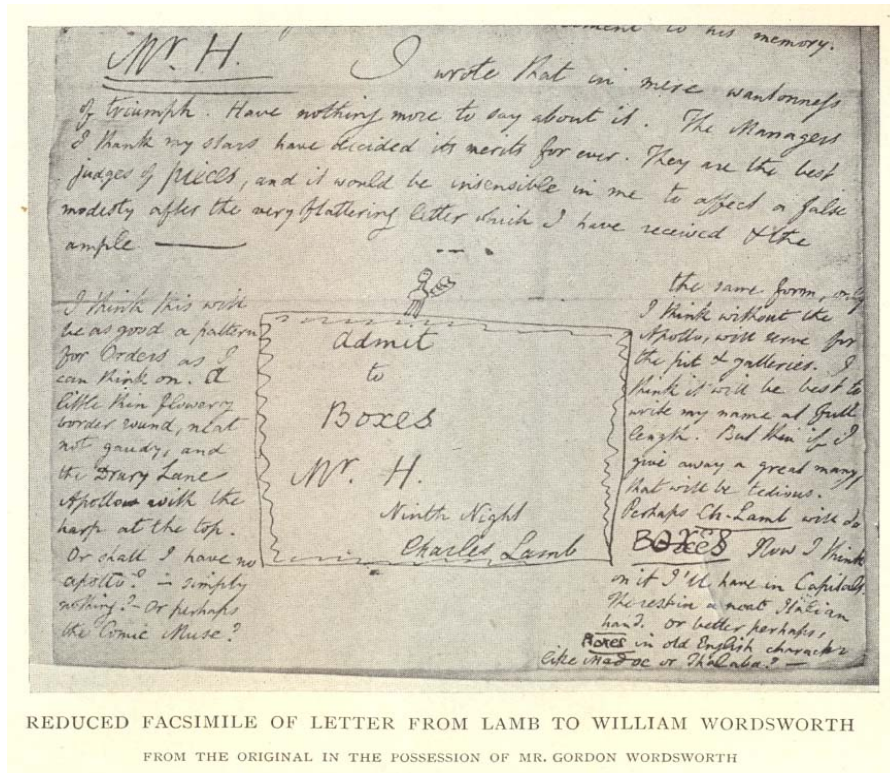 to his memory.
Mr. H.
I wrote that in mere wantonness
of triumph. Have nothing more to say about it. The Managers
I thank my stars have decided its merits for ever. They are the best
judges of pieces, and it would be insensible in me to affect a false
modesty after the very flattering letter which I have received & the
ample
I think this will
be as good a pattern
for Orders as I
can think on. A
little thin flowery
border round, neat
not gaudy, and
the Drury Lane
Apollo with the
harp at the top.
Or shall I have no
apollo? — simply
nothing? — Or perhaps
the Comic Muse?
admit
to
Boxes
Mr. H.
Ninth Night
Charles Lamb
the same form, only
I think without the
Apollo, will serve for
the pit & galleries. I
think it will be best to
write my name at full
length. But then if I
give away a great many,
that will be tedious.
Perhaps Ch. Lamb will do
BOXES Now I think
on it I'll have in Capitals
The rest in a neat Italian
hand. Or better perhaps,
Boxes in old English character
like Madoc or Thalaba? —
REDUCED FACSIMILE OF LETTER FROM LAMB TO WILLIAM WORDSWORTH
FROM THE ORIGINAL IN THE POSSESSION OF MR. GORDON WORDSWORTH